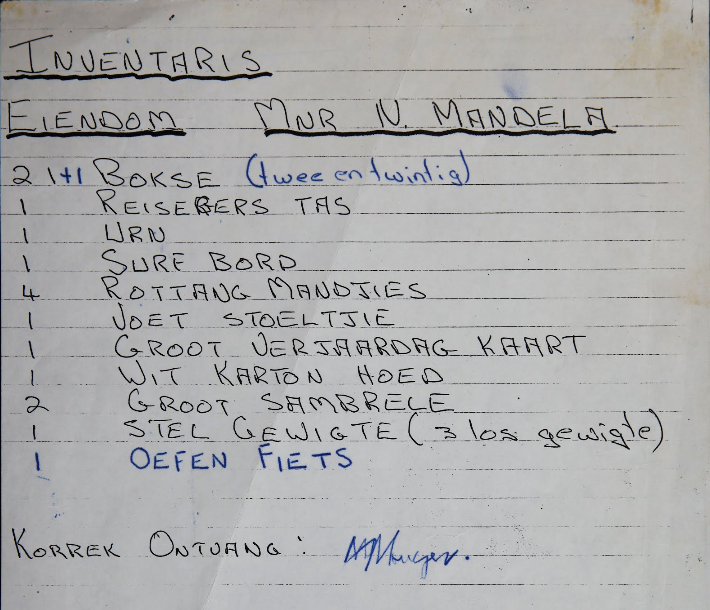 INVENTARIS
EIENDOM MNR N. MANDELA
2 1+1 BOKSE (twee en twintig)
1 REISEGERS TAS
1 URN
1 SURF BORD
4 ROTTANG MANDJIES
1 VOET STOELTJIE
1 GROOT VERJAARDAG KAART
1 WIT KARTON HOED
2 GROOT SAMBRELE
1 STEL GEWIGTE (3 los gewigte)
1 OEFEN FIETS
KORREK ONTVANG: